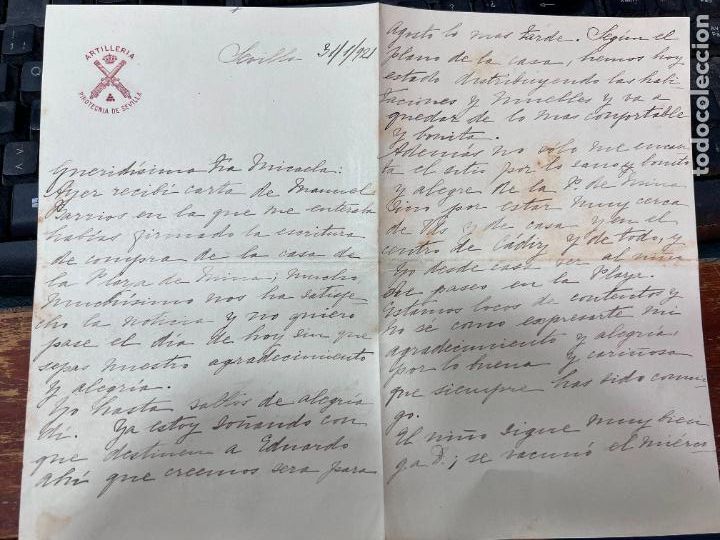 ARTILLERIA
PIROTECNIA DE SEVILLA
Sevilla 31/1/921
Queridísima tia Micaela:
Ayer recibí carta de Manuel
Barrios en la que me enteraba
habías firmado la escritura
de compra de la casa de
la Plaza de Mina; mucho,
muchísimo nos ha satisfe
cho la noticia y no quiero
pase el día de hoy sin que
sepas nuestro agradecimiento
y alegría.
Yo hasta saltos de alegria
dí. Ya estoy soñando con
que destinen a Eduardo
ahí que creemos sera para
Agosto lo mas tarde. Según el
plano de la casa, hemos hoy
estado distribuyendo las habi
taciones y muelles y va a
quedar de lo mas confortable
y bonita.
Además no solo me encan
ta el sitio por lo sano y bonito
y alegre de la P. de Mina
sino por estar muy cerca
de Vds y de casa y en el
centro de Cadiz y de todo, y
yo desde casa ver al niño
de paseo en la Plaza.
Estamos locos de contentos y
no se como expresarte mi
agradecimiento y alegria
por lo buena y cariñosa
que siempre has sido conmi
go.
El niño sigue muy bien
ga D.; se vacunó el mierco
todocoleccion